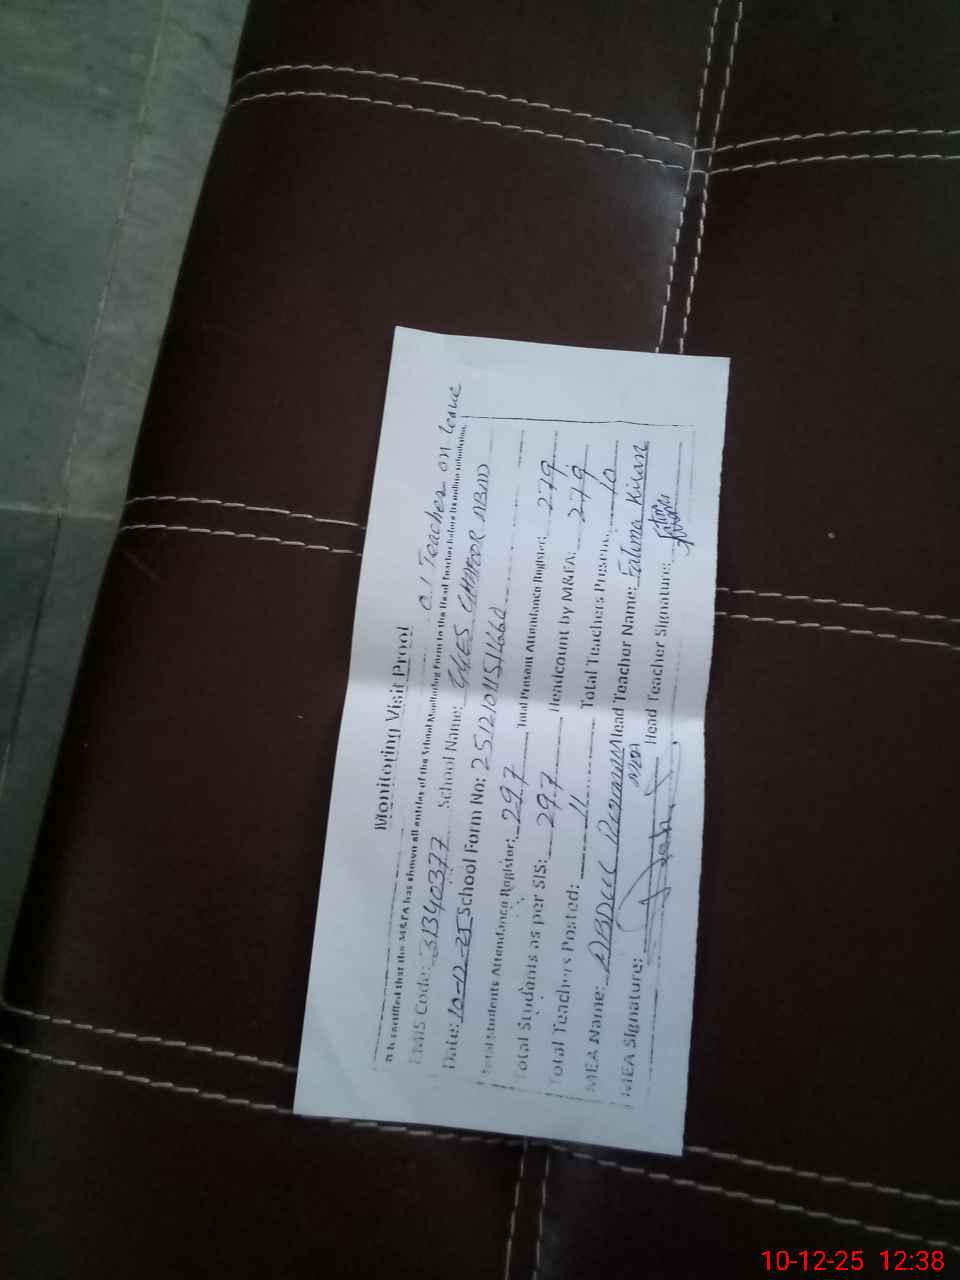 Monitoring Visit Proof
0.1 Teacher on leave
It is certified that the M&EA has shown all entries of the School Monitoring Form to the Head Teacher before its online submission.
EMIS Code: 31340377 School Name: GGES GHAFOOR ABAD
Date: 10-12-25 School Form No:
Total Students Attendance Register: 297 Total Present Attendance Register: 279
Total Students as per SIS: 297 Headcount by M&EA: 279
Total Teachers Posted: 11 Total Teachers Present: 10
MEA Name: ABDUL Head Teacher Name: Fatima Kiran
MEA Signature: MEA Head Teacher Signature:
10-12-25 12:38